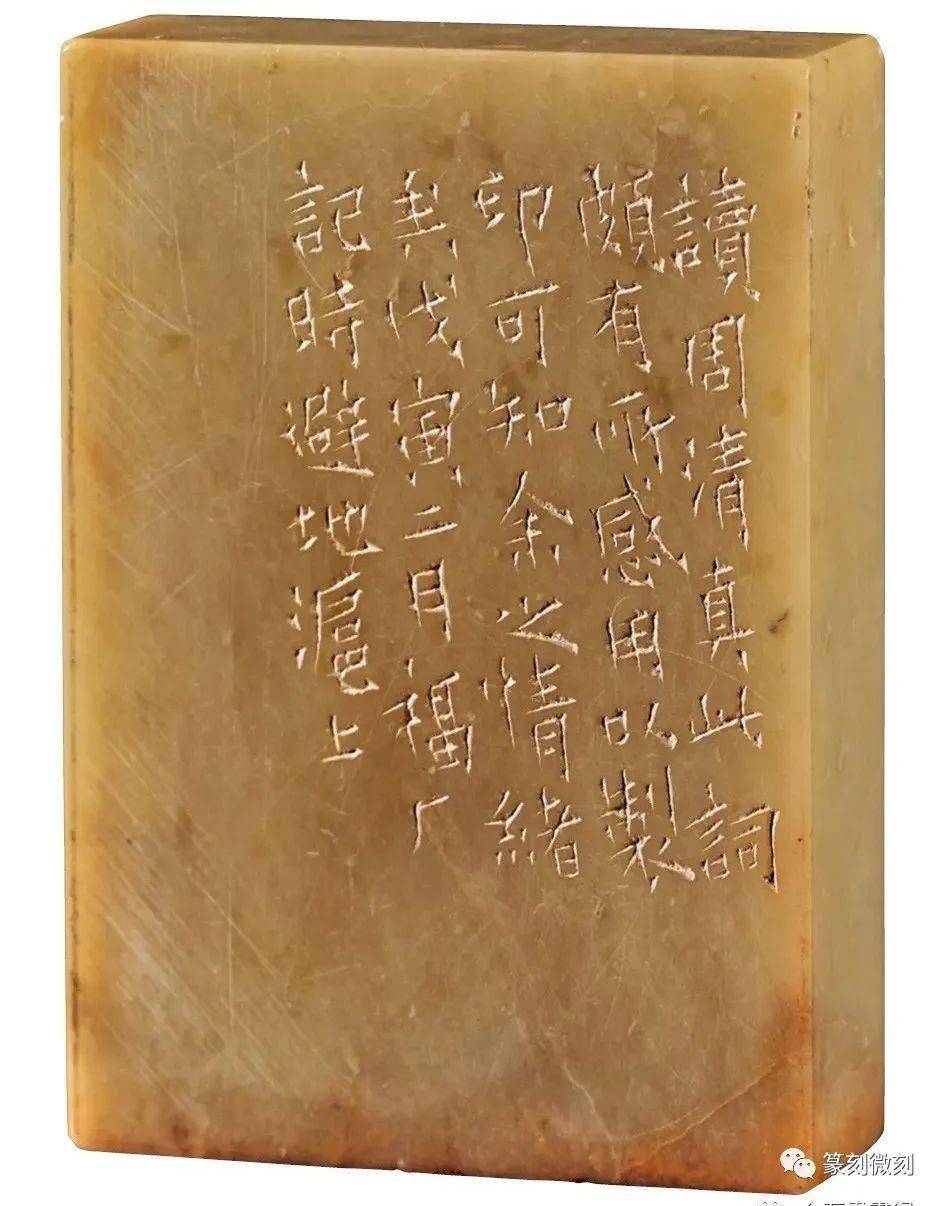 讀周清真此詞
頗有所感用以製
印可知余之情緒
矣戊寅二月福厂
記時避地滬上
篆刻微刻